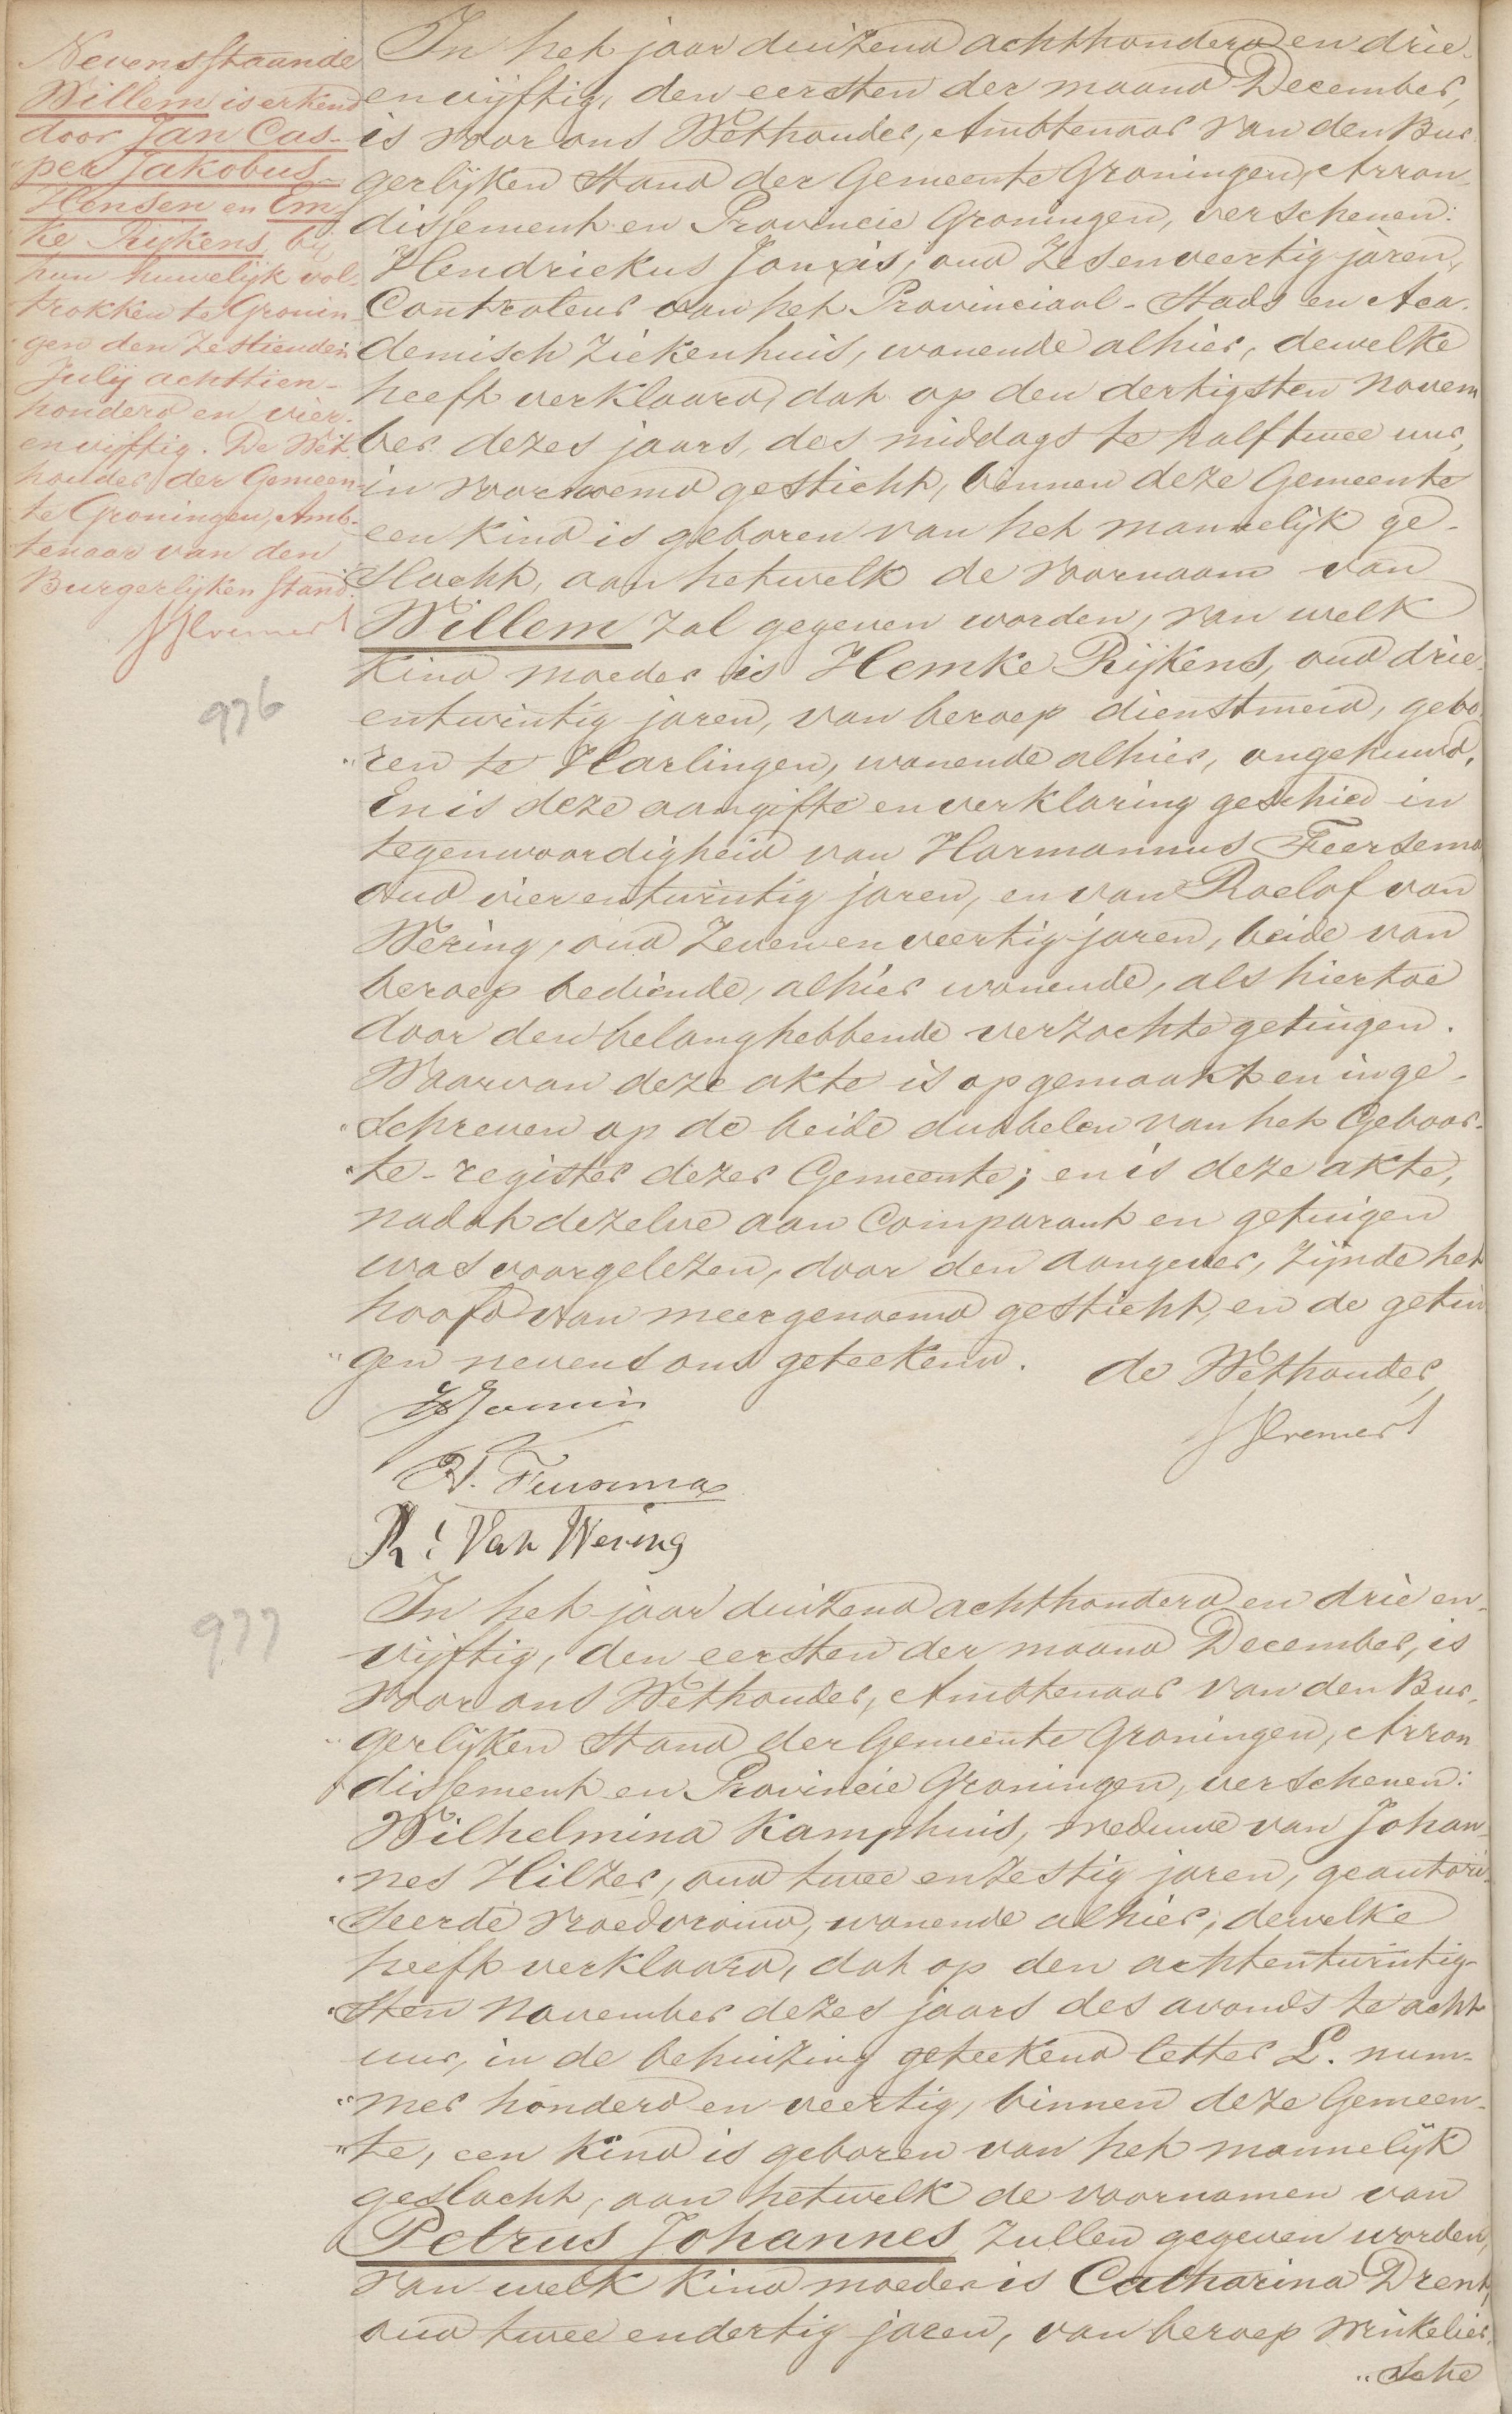 Nevensstaande
Willem is erkend
door Jan Cas-
per Jakobus
Hensen en Em
ke Rijkens bij
hun huwelijk vol-
trokken te Gronin
gen den zestienden
Julij achttien-
honderd en vier-
en vijftig. De Wet-
houder der Gemeen-
te Groningen, Amb-
tenaar van den
Burgerlijken Stand.
976
In het jaar duizend achthonderd en drie-
en vijftig, den eersten der maand December,
is voor ons Wethouder, Ambtenaar van den Bur
gerlijken Stand der Gemeente Groningen, Arron-
dissement en Provincie Groningen, verschenen:
Hendriekus Jonxis, oud Zesenveertig jaren,
Controleur van het Provinciaal-Stads en Aca-
demisch Ziekenhuis, wonende alhier, dewelke
heeft verklaard, dat op den dertigsten Novem
ber dezes jaars, des middags te half twee uur,
in voornoemd gesticht, binnen deze Gemeente
een kind is geboren van het mannelijk ge-
slacht, aan hetwelk de voornaam van
Willem zal gegeven worden, van welk
kind moeder is Hemke Rijkens, oud drie-
entwintig jaren, van beroep dienstmeid, gebo
"ren te Harlingen, wonende alhier, ongehuwd.
En is deze aangifte en verklaring geschied in
tegenwoordigheid van Harmannus Feersema
oud vier entwintig jaren, en van Roelof van
Wering, oud Zeven en veertig jaren, beide van
beroep bediende, alhier wonende, als hiertoe
door den belanghebbende verzochte getuigen.
Waarvan deze akte is opgemaakt en inge-
"schreven op de beide dubbelen van het Geboor-
"te-register dezer Gemeente; en is deze akte,
nadat dezelve aan Comparant en getuigen
was voorgelezen, door den aangever, zijnde het
hoofd van meergenoemd gesticht, en de getui
"gen nevens ons geteekend. de Wethouder
H. Feersema
R: Van Wering
977
In het jaar duizend achthonderd en drie en-
vijftig, den eersten der maand December, is
voor ons Wethouder, Ambtenaar van den Bur-
"gerlijken Stand der Gemeente Groningen, Arron
dissement en Provincie Groningen, verschenen:
Wilhelmina Kamphuis, weduwe van Johan-
"nes Hilzer, oud twee en zestig jaren, geautori-
"seerde vroedvrouw, wonende alhier, dewelke
heeft verklaard, dat op den achtentwintig-
"sten November dezes jaars des avonds te acht
uur, in de behuizing geteekend letter L. num-
"mer honderd en veertig, binnen deze Gemeen-
"te, een kind is geboren van het mannelijk
geslacht, aan hetwelk de voornamen van
Petrus Johannes zullen gegeven worden,
van welk kind moeder is Catharina Drent,
oud twee endertig jaren, van beroep winkelier-
"sche